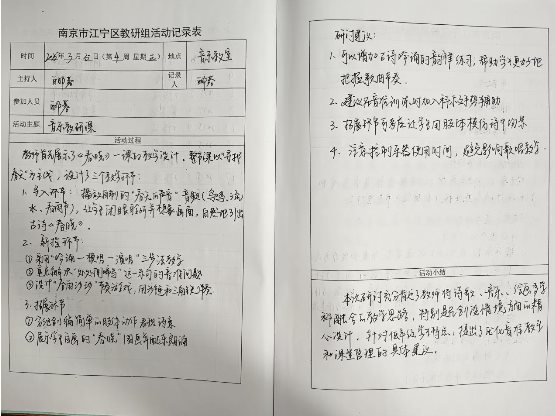 南京市江宁区教研组活动记录表
时间
年3月 日(第4周 星期五)
地点
音乐教室
主持人
记录人
参加人员
活动主题
音乐教研课
活动过程
教师首先展示了《春晓》一课的教学设计,
春天"为主线,设计了三个教学环节:
1. 导入环节:播放自制的"春天的声音"音频(鸟鸣、流
水、春雨声),让学生闭眼聆听并想象画面,自然地引出
古诗《春晓》。
2. 新授环节:
①采用"吟诵—模唱—演唱"三步法教学
②重点解决"处处闻啼鸟"这一乐句的音准问题
③设计"春雨沙沙"节奏游戏,用沙锤和三角铁伴奏
3. 拓展环节
①分组创编简单的肢体动作表现诗意
②展示学生自画的"春晓"图画并配乐朗诵
研讨建议:
1. 可以增加古诗吟诵的韵律练习,帮助学生更好地
把握歌曲节奏。
2. 建议在音准训练时加入柯尔文手势辅助
3. 拓展环节可考虑让学生用肢体模仿诗中的景
4. 注意控制乐器使用时间,避免影响歌唱教学
活动小结
本次研讨充分肯定了教师将诗歌、音乐、绘画多学
科融合的教学思路,特别是在创设情境方面的精
心设计。针对低年级学生特点,提出了优化音准教学
和课堂管理的具体建议。